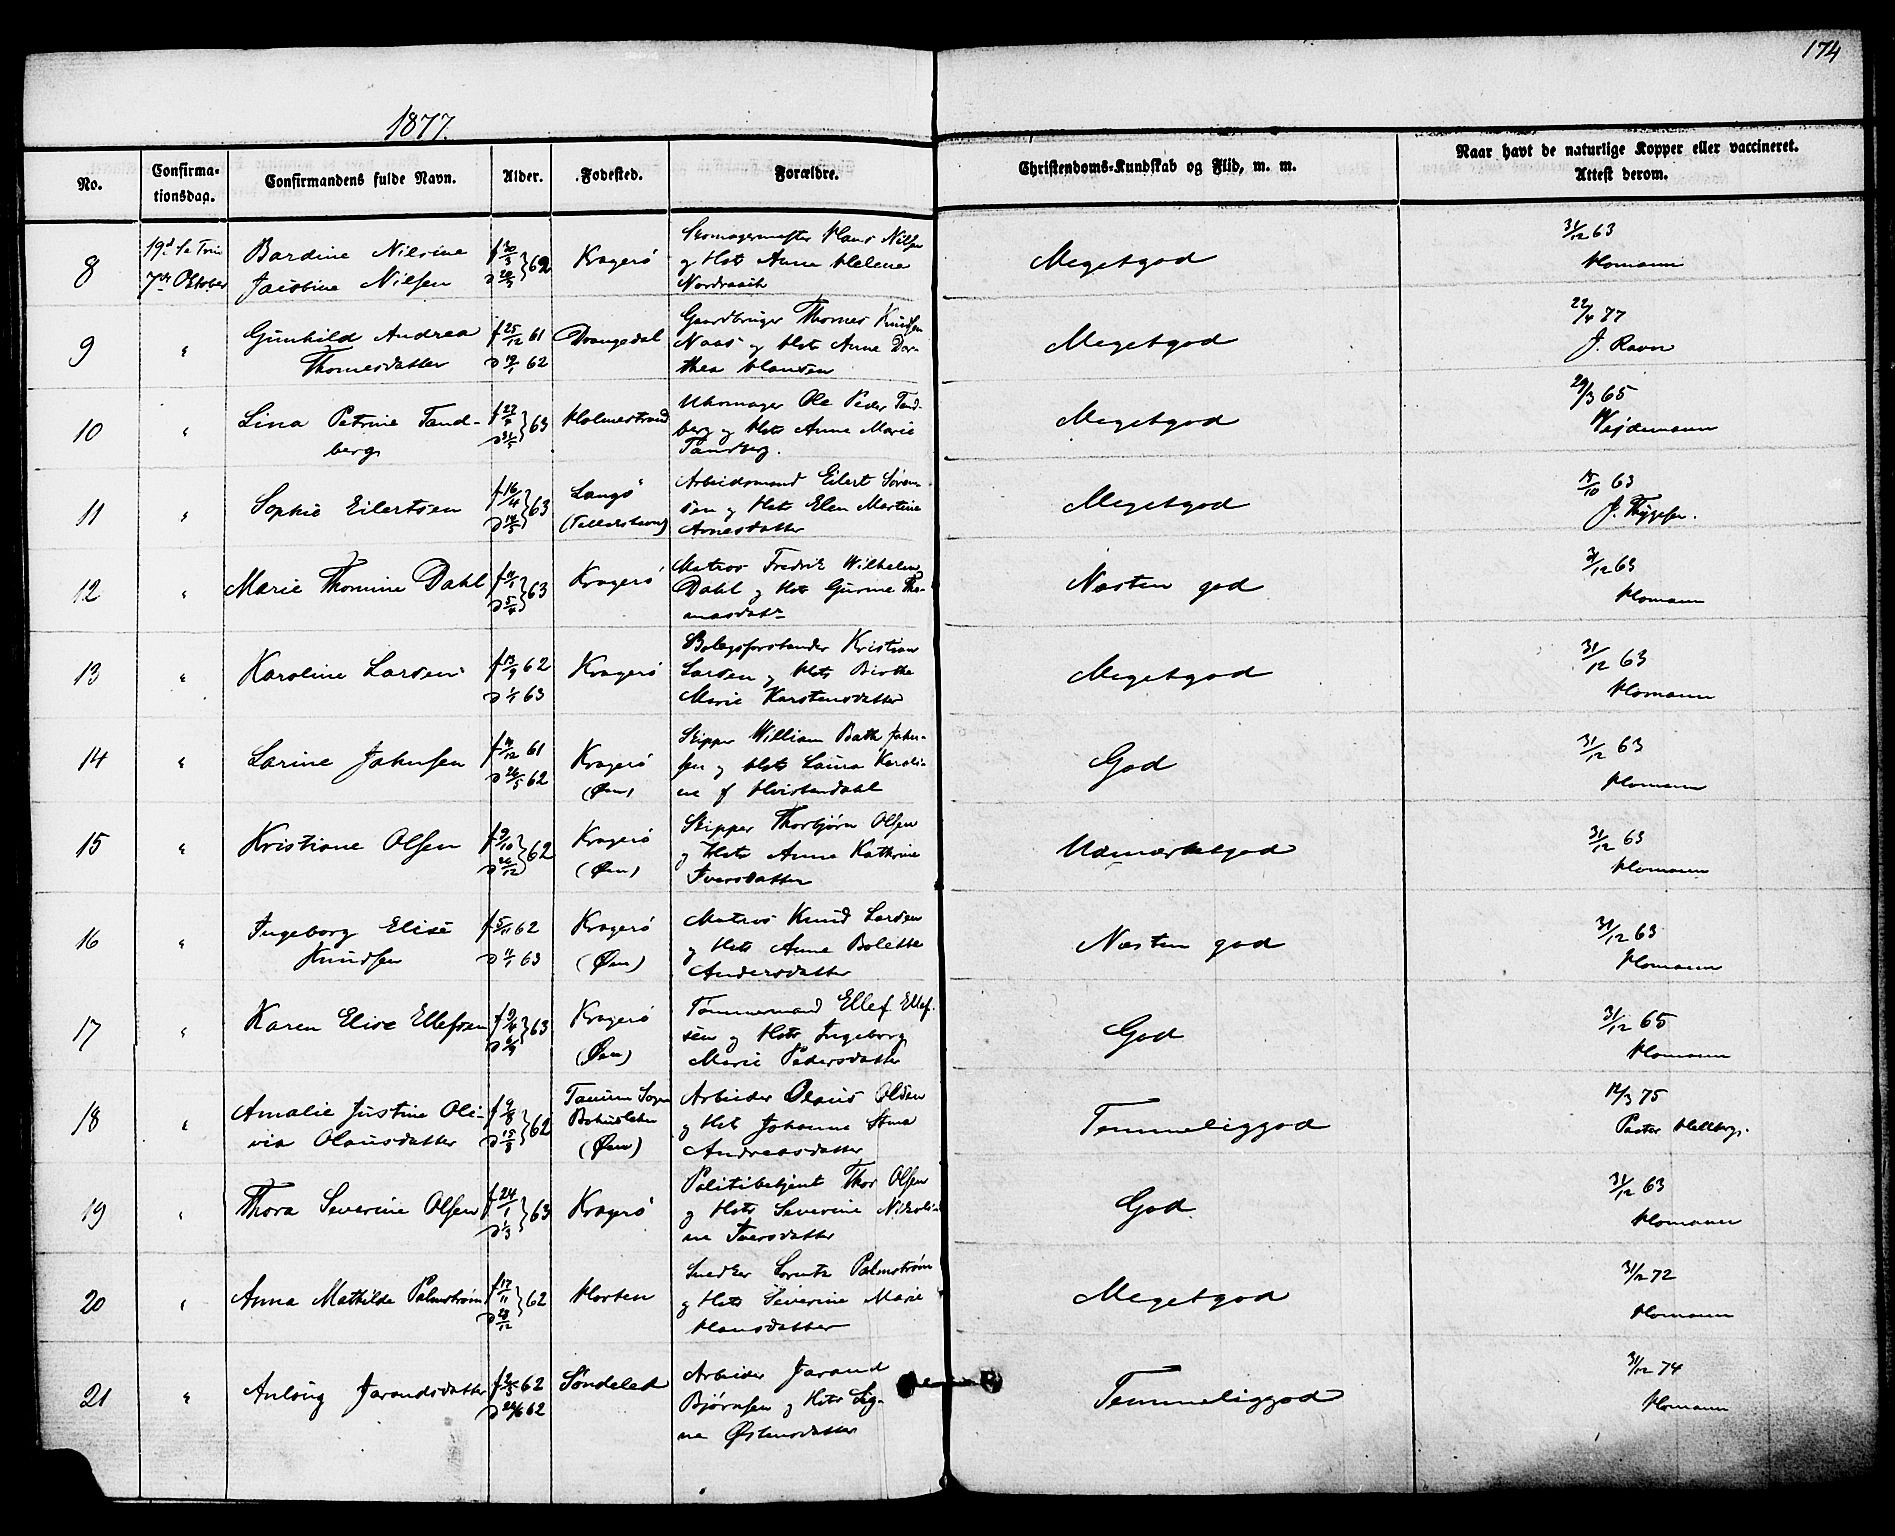 174
1877.
No.
Confirma-
tionsdag.
Confirmandens fulde Navn.
Alder.
Fødested.
Forældre.
Christendoms-Kundskab og Flid, m. m.
Naar havt de naturlige Kopper eller vaccineret.
Attest derom.
8
19d S. e Trin
7de Oktober
Bardine Nilsine
Jacobine Nielsen
62
Kragerø
Skomagermester Hans Nilsen
og Hst Anne Helene
Megetgod
31/12 63
Homann
9
"
Gunhild Andrea
Thomesdatter
f 25/12 61
62
Drangedal
Gaardbruger Thomes Knudsen
Naas og Hst Anne Dor-
thea Hansen
Megetgod
22/4 77
J. Ravn
10
"
Lina Petrine Tand-
berg
63
Holmestrand
Uhrmager Ole Peder Tand-
berg og Hst Anne Marie
Tandberg.
Megetgod
29/3 65
Wejdemann
11
"
Sophie Eilertsen
f 16/4 63
Langø
Arbeidsmand Eilert Søren-
sen og Hst Elen Martine
Arnesdatter
Megetgod
15/10 63
J. Thygesen.
12
"
Marie Thomine Dahl
63
Kragerø
Matros Fredrik Wilhelm
Dahl og Hst Gurine Tho-
masdatr
Næsten god
31/12 63
Homann
13
"
Karoline Larsen
62
63
Kragerø
Bolagsforstander Kristian
Larsen og Hst Birthe
Marie Karstensdatter
Megetgod
31/12 63
Homann
14
"
Larine Jahnsen
61
62
Kragerø
(Øen)
Skipper William Bath Jahn-
sen og Hst Laura Karoli-
ne f Hvistendahl
God
31/12 63
Homann
15
"
Kristiane Olsen
f 9/10 62
Kragerø
(Øen)
Skipper Thorbjørn Olsen
og Hst Anne Kathrine
Iversdatter
Udmærketgod
31/12 63
Homann
16
"
Ingeborg Elise
Knudsen
f 5/11 62
63
Kragerø
(Øen)
Matros Knud Larsen
og Hst Anne Bolette
Andersdatter
Næsten god
31/12 63
Homann
17
"
Karen Elise Ellefsen
63
Kragerø
(Øen)
Tømmermand Ellef Ellef-
sen og Hst Ingeborg
Marie Pedersdatter
God
31/12 65
Homann
18
"
Amalie Justine Oli-
via Olausdatter
62
Tanum Sogn
Bohuslehn
(Øen)
Arbeider Olaus Olsen
og Hst Johanne Stina
Andreasdatter
Temmeliggod
12/3 75
Pastor Hellberg.
19
"
Thora Severine Olsen
f 24/1 63
Kragerø
Politibetjent Thor Olsen
og Hst Severine Nikoli-
ne Iversdatter
God
31/12 63
Homann
20
"
Anna Mathilde Palmstrøm
f 17/11 62
Horten
Snedker Lorentz Palmstrøm
og Hst Severine Marie
Hansdatter
Megetgod
31/12 72
Homann
21
"
Anlaug Jarandsdatter
62
62
Søndeled
Arbeider Jarand
Bjørnsen og Hst Sig-
ne Østensdatter
Temmeliggod
31/12 74
Homann